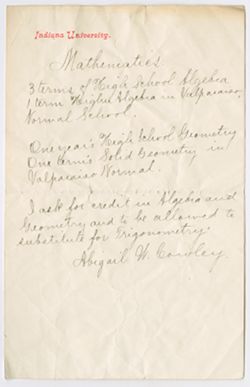 Indiana University.
Mathematics
3 terms of High School Algebra
1 term Higher Algebra in Valparaiso
Normal School.
One year's High School Geometry
One term's Solid Geometry in
Valparaiso Normal.
I ask for credit in Algebra and
Geometry and to be allowed to
substitute for Trigonometry.
Abigail W. Cowley.